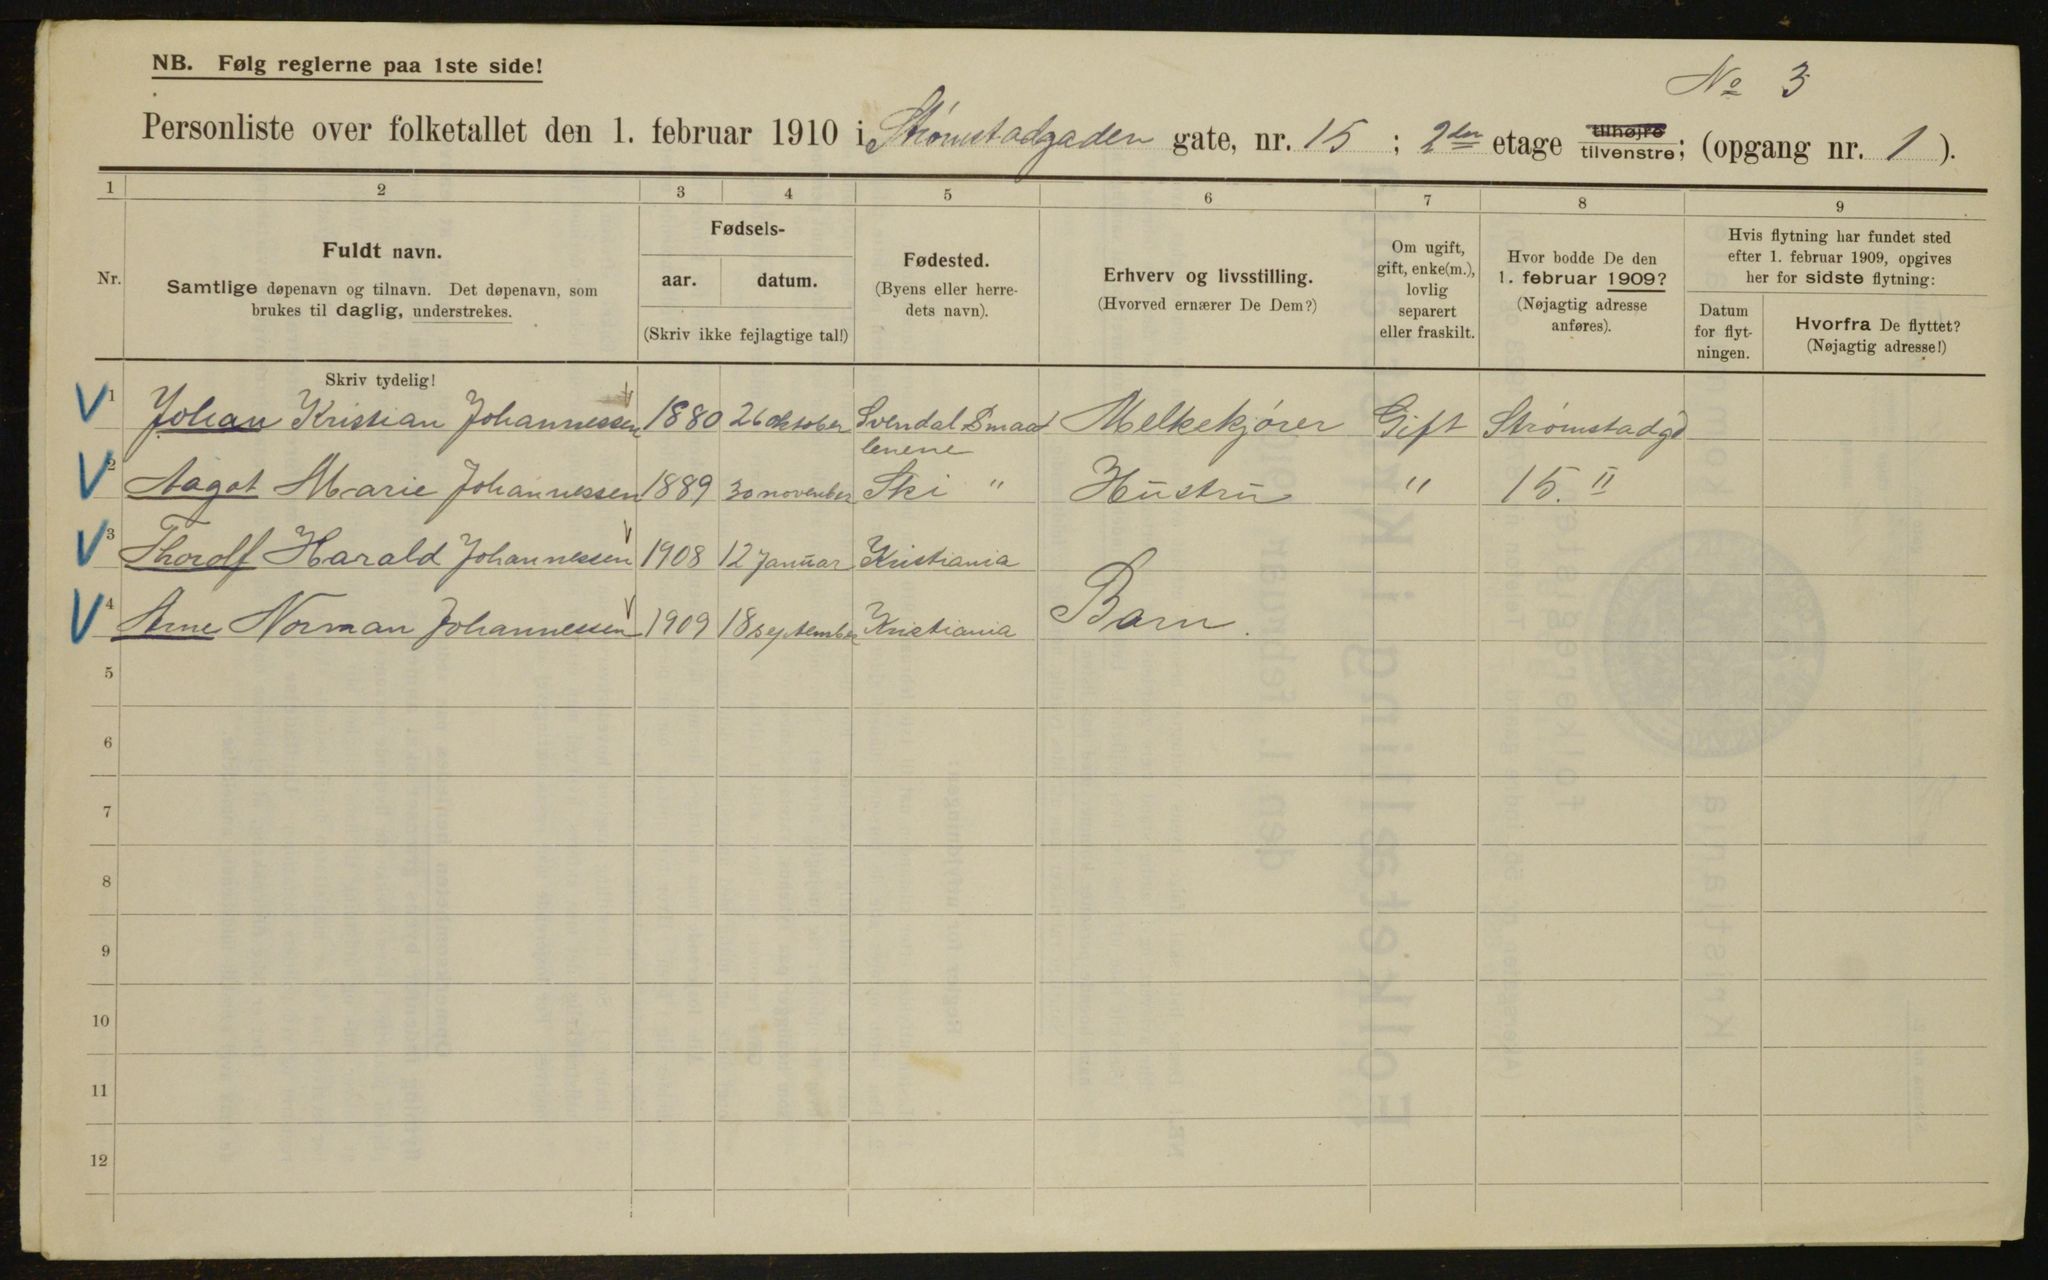 NB. Følg reglerne paa 1ste side!
No 3
Personliste over folketallet den 1. februar 1910 i Strømstadgaden gate, nr. 15 ; 2den etage tilhøjre tilvenstre; (opgang nr. 1 ).
1 2 3 4 5 6 7 8 9
Nr.
Fuldt navn.
Samtlige døpenavn og tilnavn. Det døpenavn, som
brukes til daglig, understrekes.
Fødsels-
aar. datum.
(Skriv ikke fejlagtige tal!)
Fødested.
(Byens eller herre-
dets navn).
Erhverv og livsstilling.
(Hvorved ernærer De Dem?)
Om ugift,
gift, enke(m.),
lovlig
separert
eller fraskilt.
Hvor bodde De den
1. februar 1909?
(Nøjagtig adresse
anføres).
Hvis flytning har fundet sted
efter 1. februar 1909, opgives
her for sidste flytning:
Datum
for flyt-
ningen.
Hvorfra De flyttet?
(Nøjagtig adresse!)
Skriv tydelig!
V 1 Johan Kristian Johannessen 1880 26 oktober Svendal Smaa Melkekjører Gift Strømstadgd
lenene
V 2 Aagot Marie Johannessen 1889 30 november Ski " Hustru " 15. II
V 3 Thorolf Harald Johannessen 1908 12 Januar Kristiania
V 4 Arne Norman Johannessen 1909 18 september Kristiania Barn.
5
6
7
8
9
10
11
12